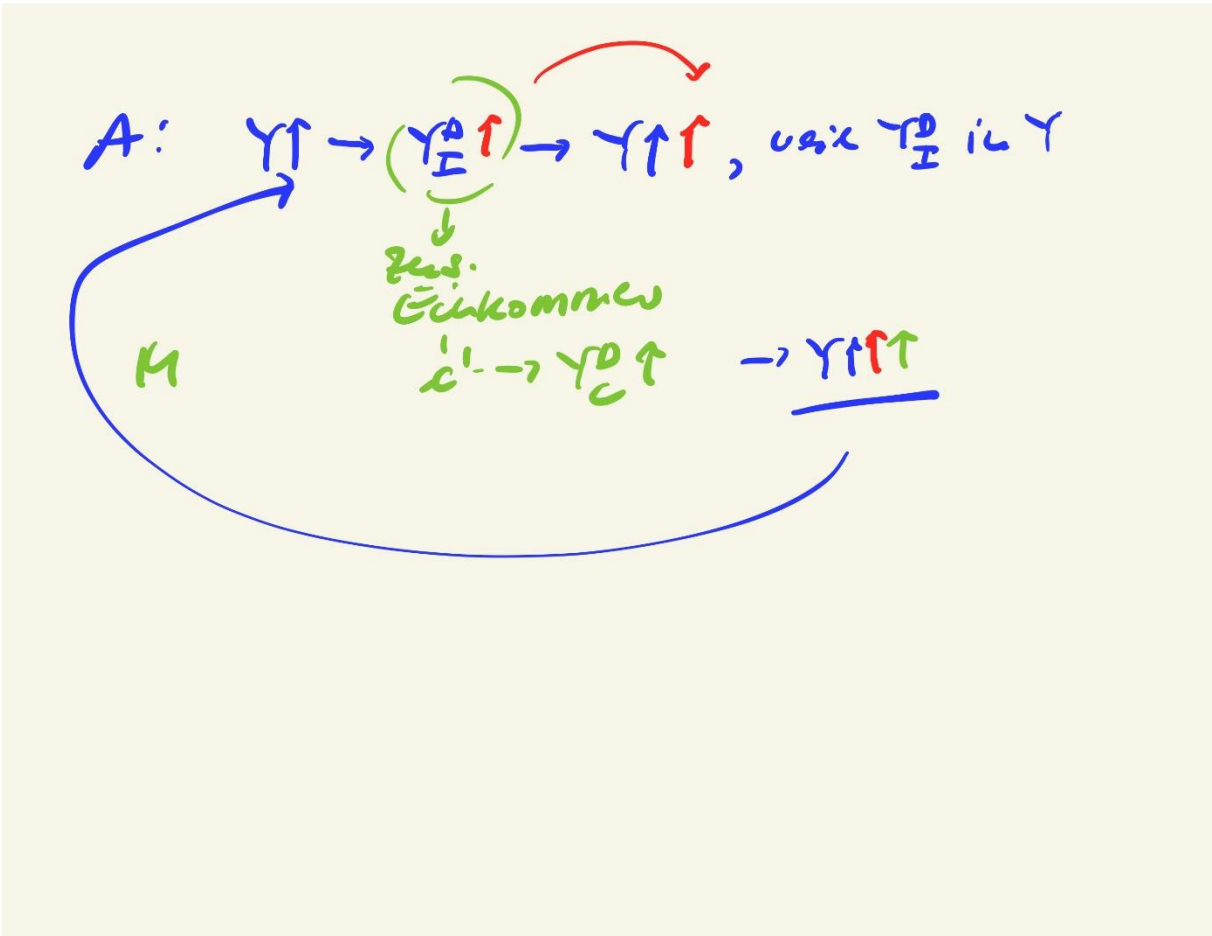 A: Y↑ → (Y^D_I ↑) → Y↑↑, weil Y^D_I in Y
↓
zus.
Einkommen
M c' → Y^D_C ↑ → Y↑↑↑